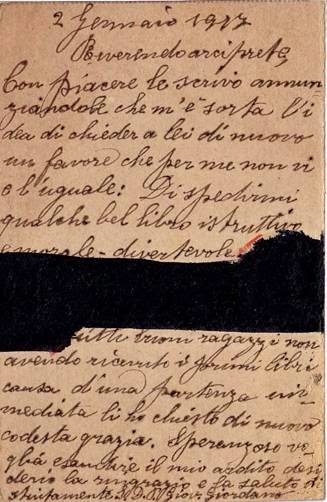 2 Gennaio 1917
Reverendo arciprete
Con piacere le scrivo annun
ziandole che m'è sorta l'i
dea di chieder a lei di nuovo
un favore che per me non vi
è l'uguale: Di spedirmi
qualche bel libro istruttivo
e morale - divertevole
tutti buoni ragazzi non
avendo ricevuti i primi libri
causa d'una partenza im
mediata li ho chiesto di nuovo
codesta grazia. Speranzoso vo
glia esaudire il mio ardito desi
derio la ringrazio e la saluto di
stintamente Giordano